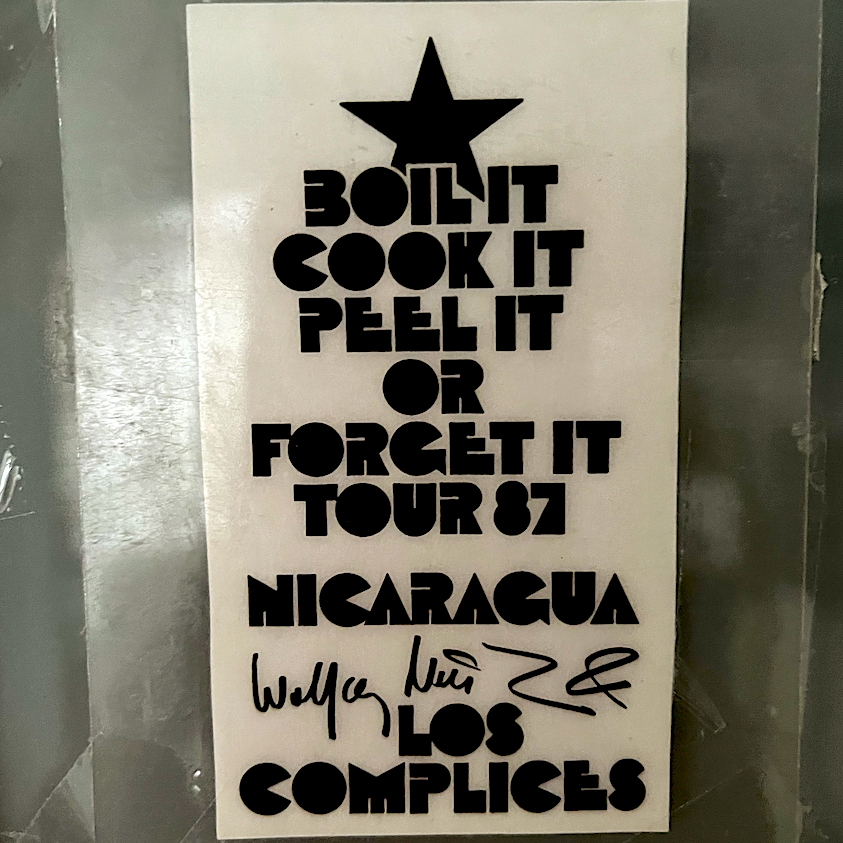 BOIL IT
COOK IT
PEEL IT
OR
FORGET IT
TOUR 87
NICARAGUA
Wolfgang &
LOS
COMPLICES